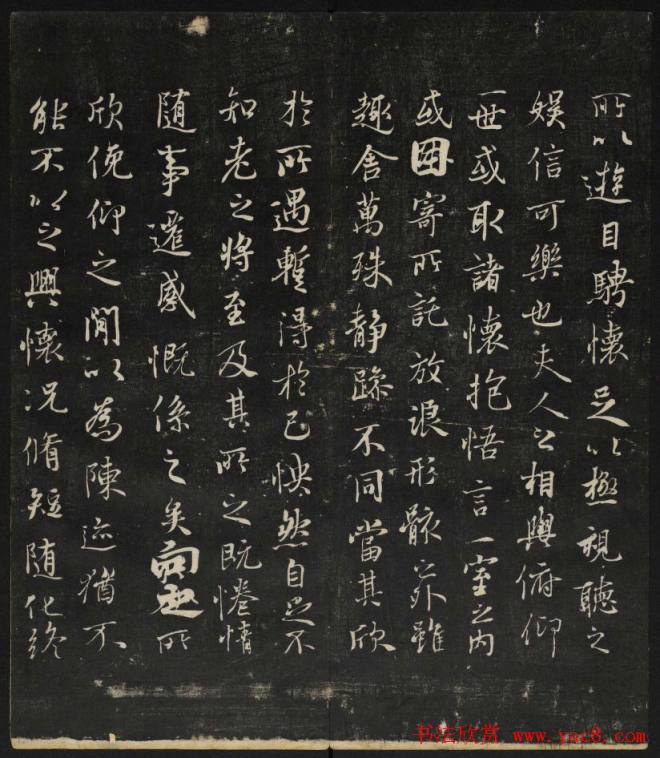 所以遊目騁懷足以極視聽之
娛信可樂也夫人之相與俯仰
一世或取諸懷抱悟言一室之內
或因寄所託放浪形骸之外雖
趣舍萬殊静躁不同當其欣
於所遇暫得於己怏然自足不
知老之將至及其所之既惓情
随事遷感慨係之矣向之所
欣俛仰之閒以為陳迹猶不
能不以之興懷況脩短随化終
书法欣赏 www.yac8.com